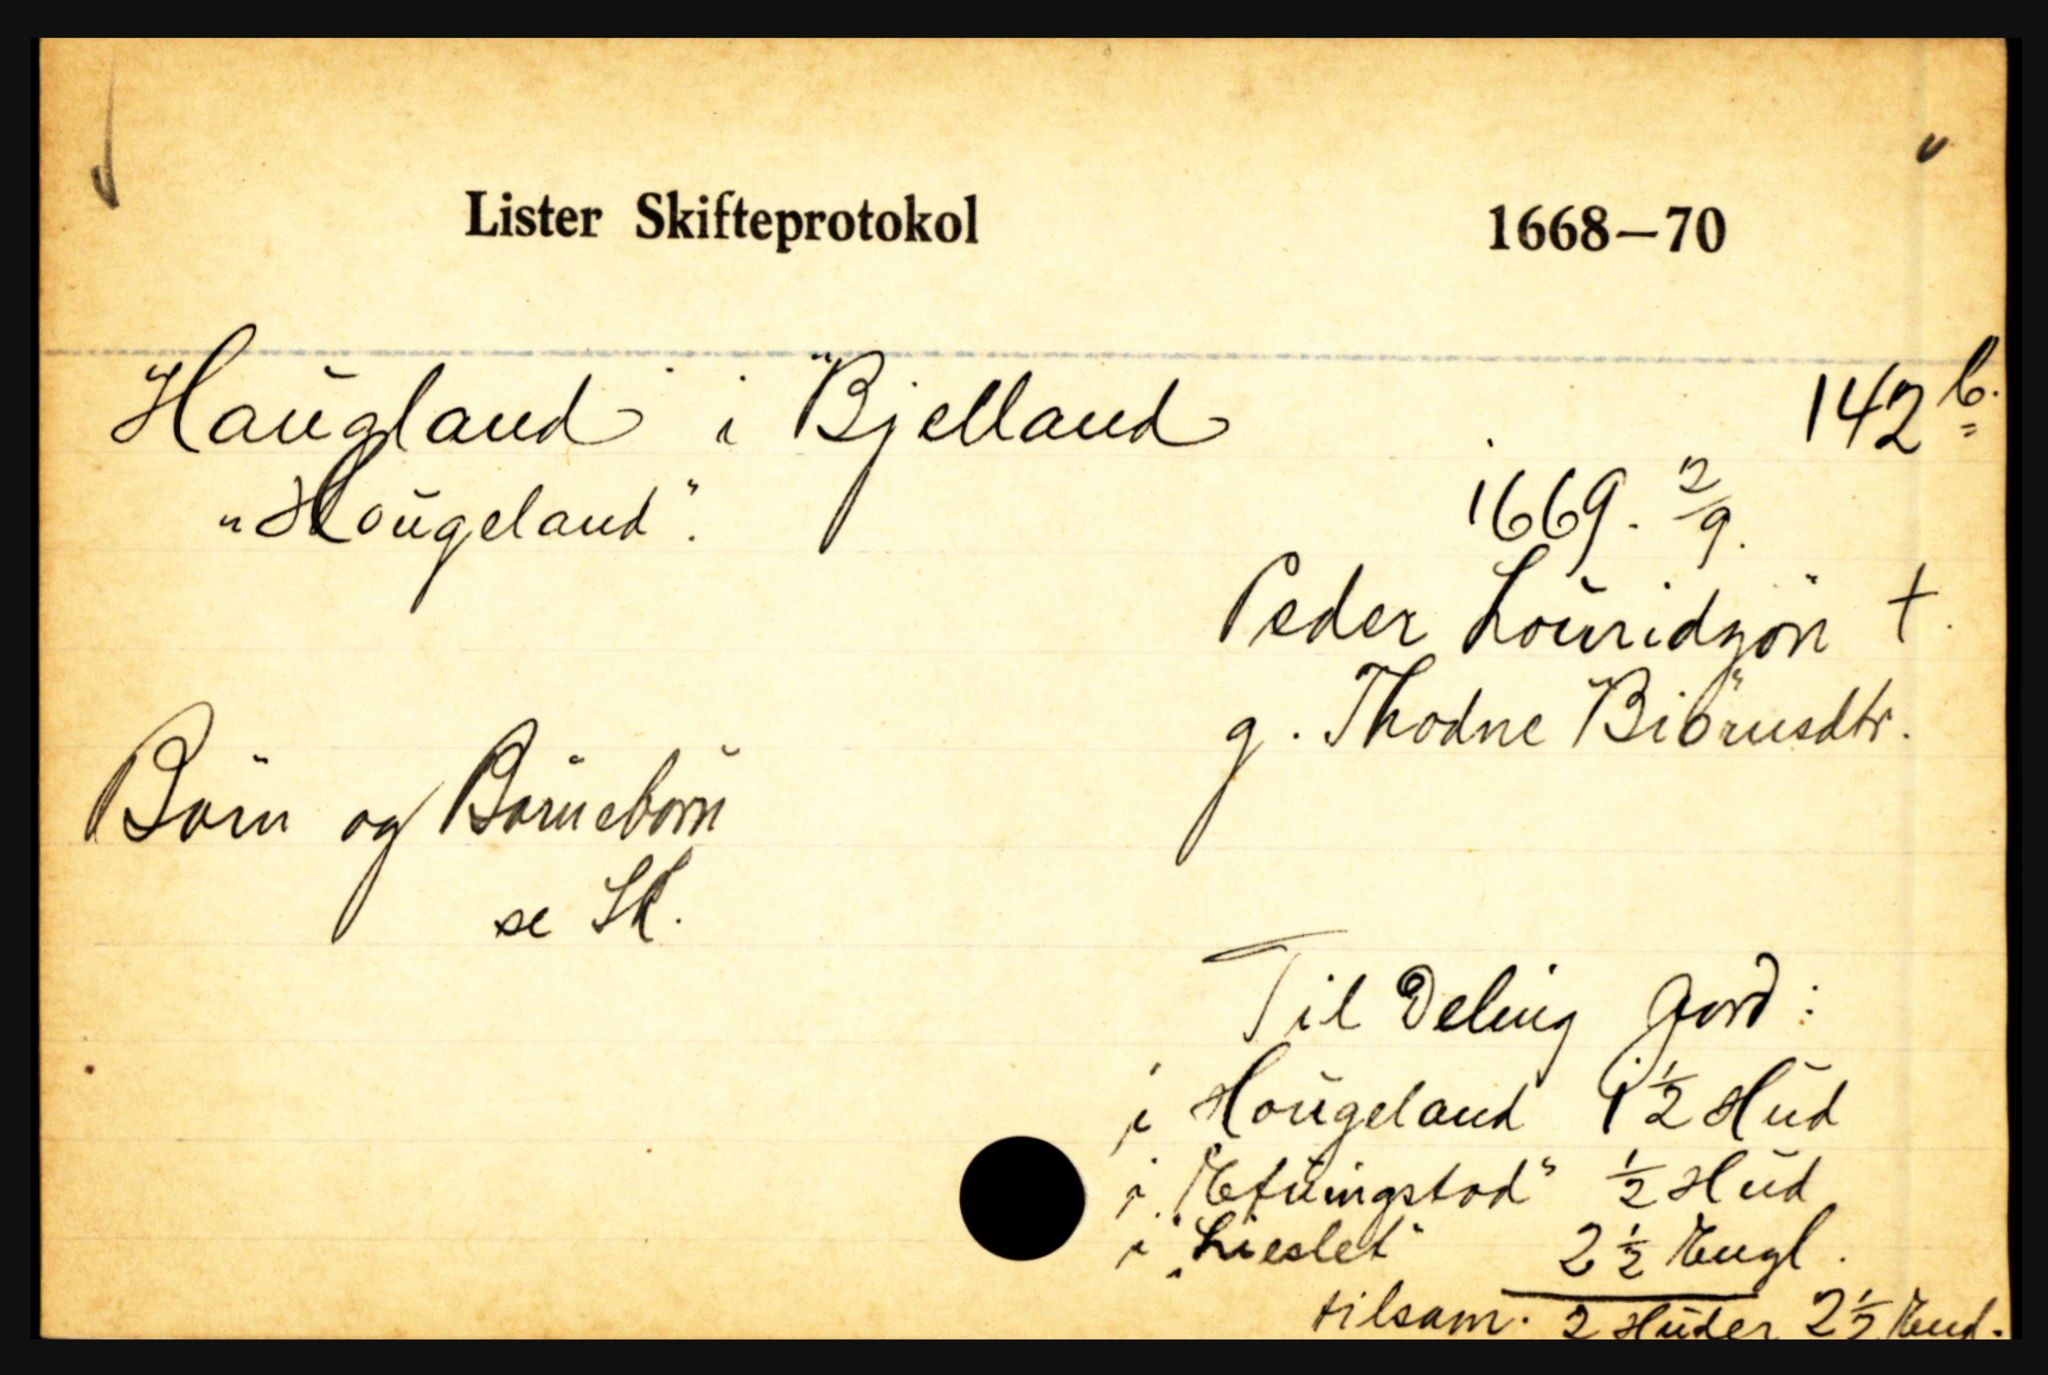 Lister Skifteprotokol 1668—70
Haugland i Bjelland 142 b.
"Hougeland".
1669. 2/9.
Peder Louridzön †.
g. Thodne Biörnsdtr.
Börn og Börnebörn
se Sk.
Til Deling Jord:
i Hougeland 1 1/2 Hud
i 1/2 Hud
i "Lieslet" 2 1/2 Engl.
tilsam. 2 Huder 2 1/2 Engl.